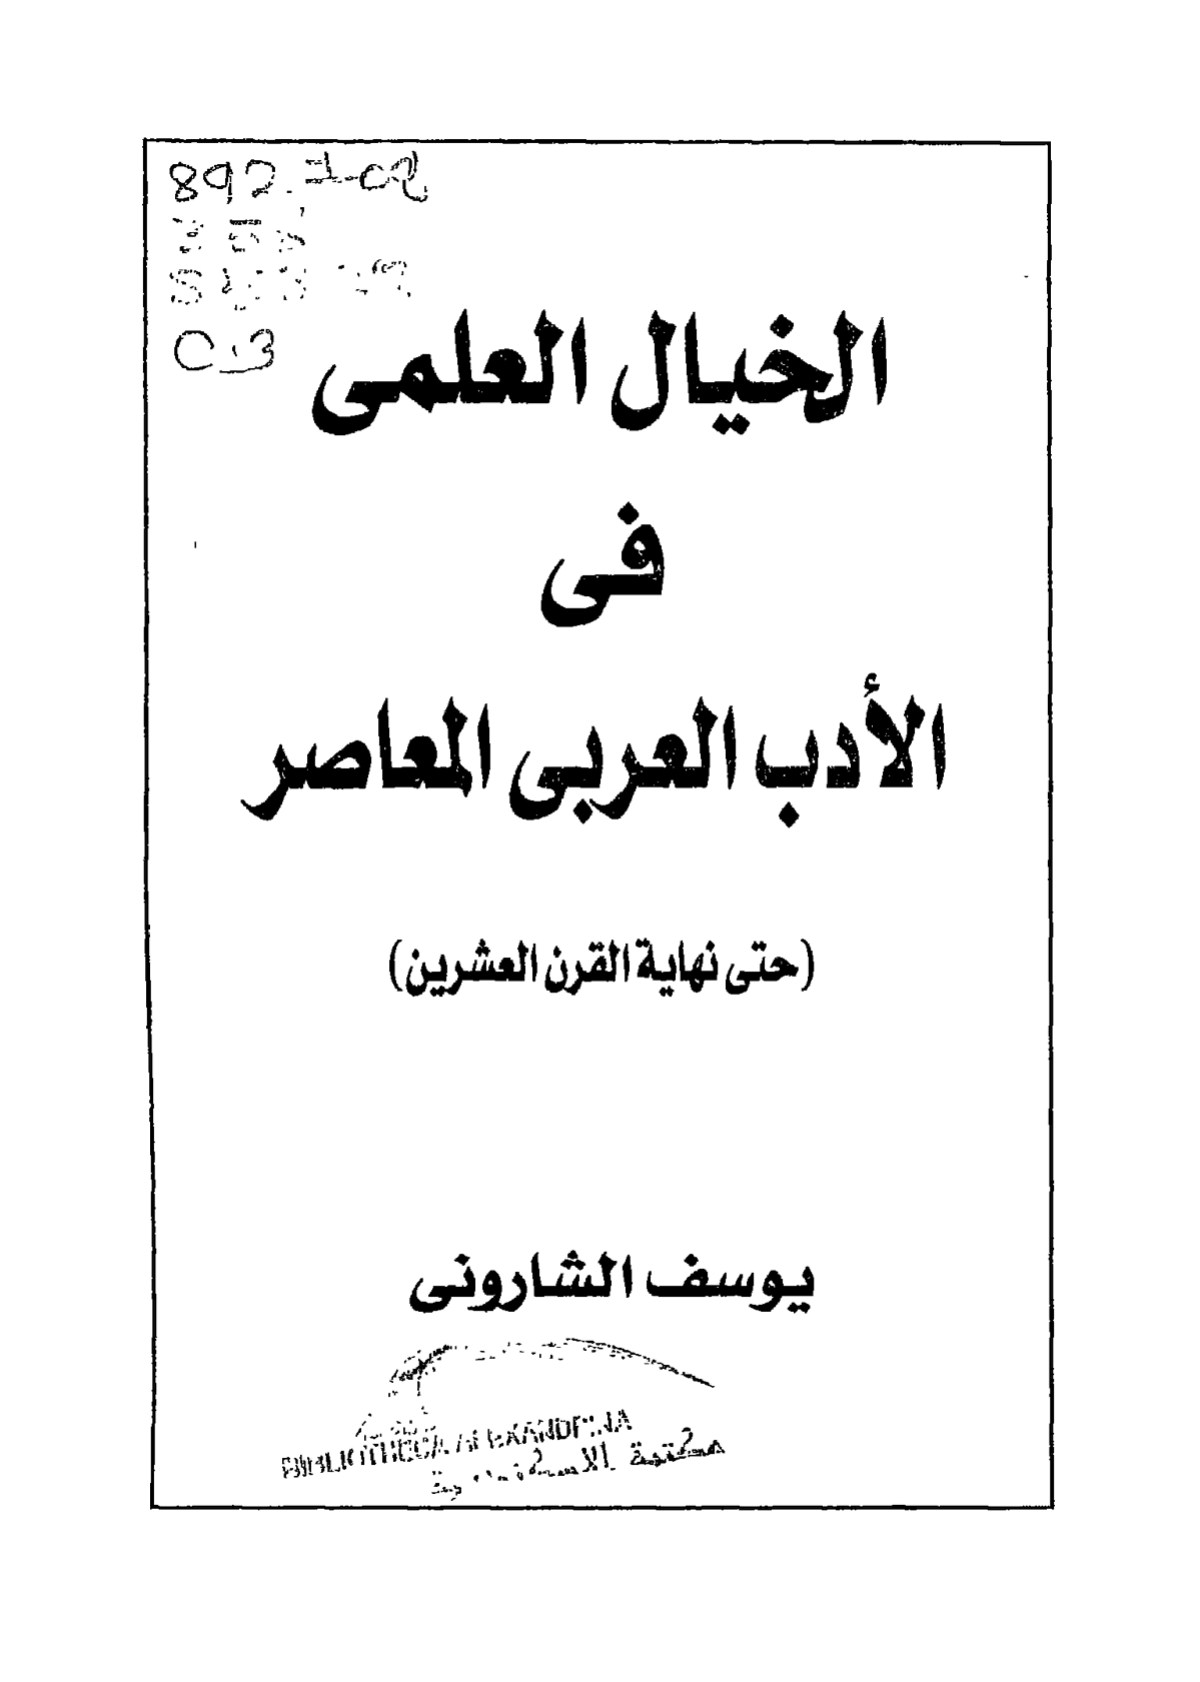 892.702
C.3
الخيال العلمى
فى
الأدب العربى المعاصر
(حتى نهاية القرن العشرين)
يوسف الشارونى
BIBLIOTHECA ALEXANDRINA
مكتبة الاسكندرية